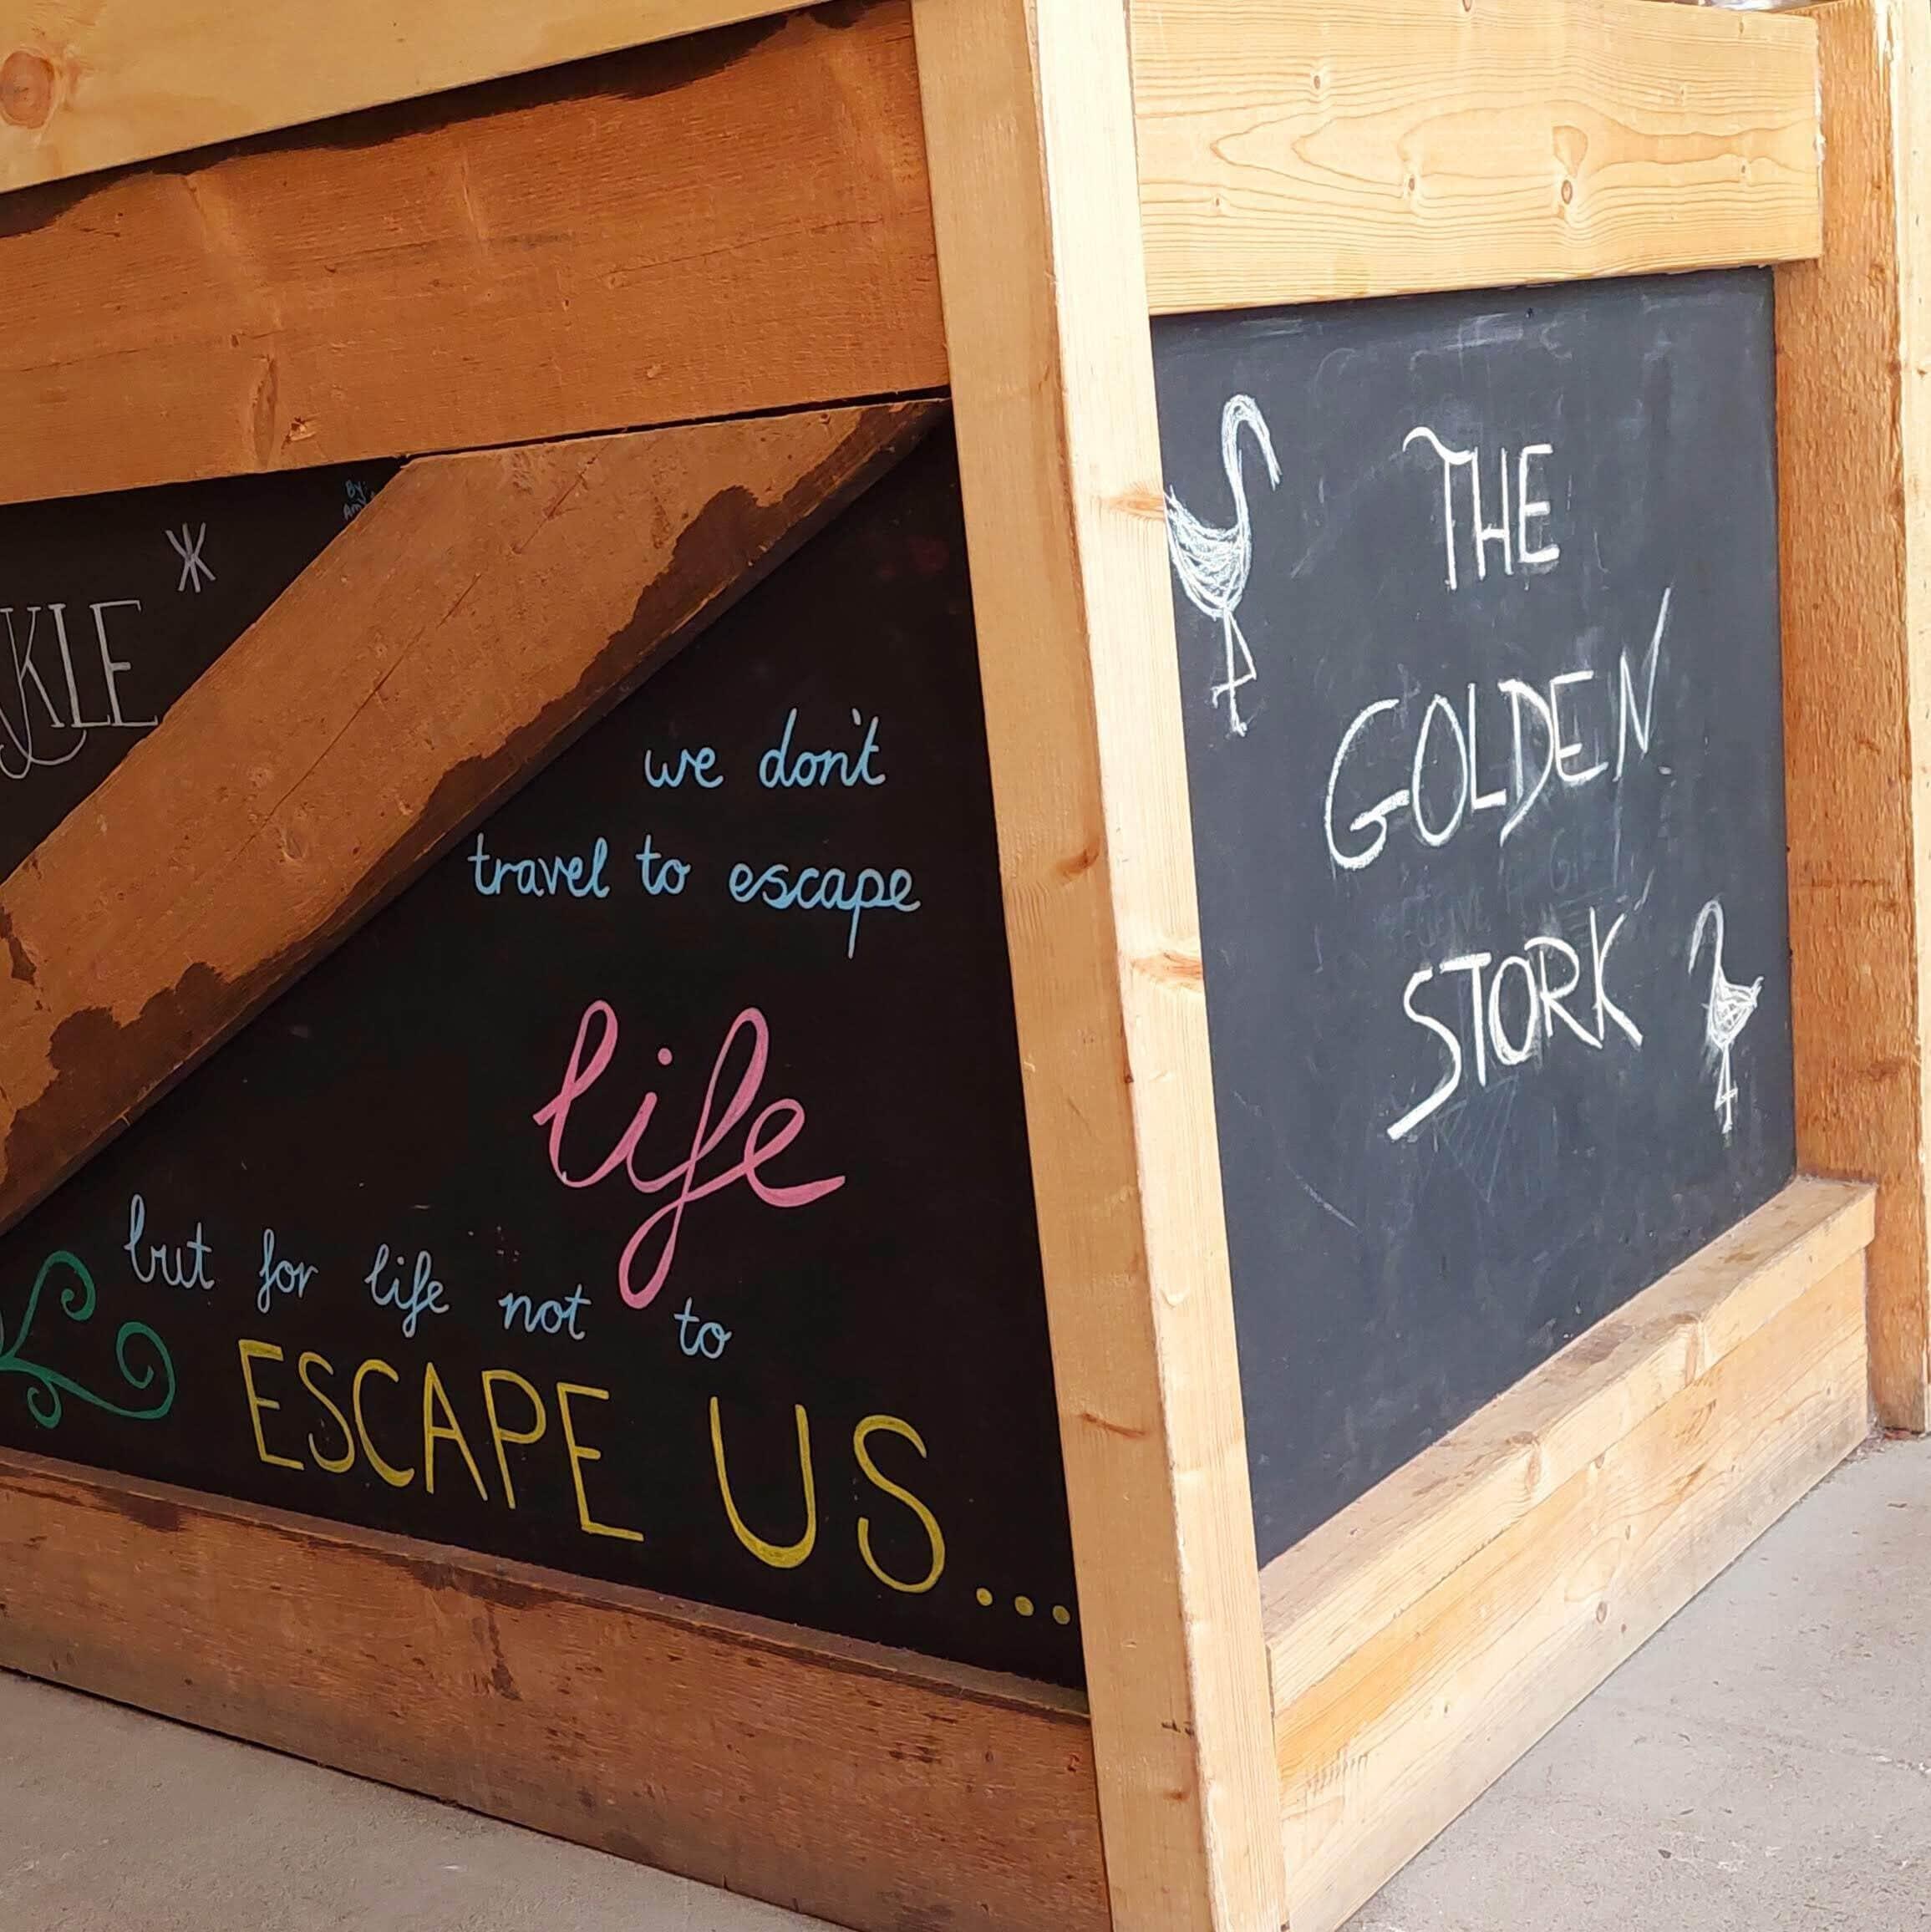 By:
KLE
we don't
travel to escape
life
but for life not to
ESCAPE US...
THE
GOLDEN
STORK